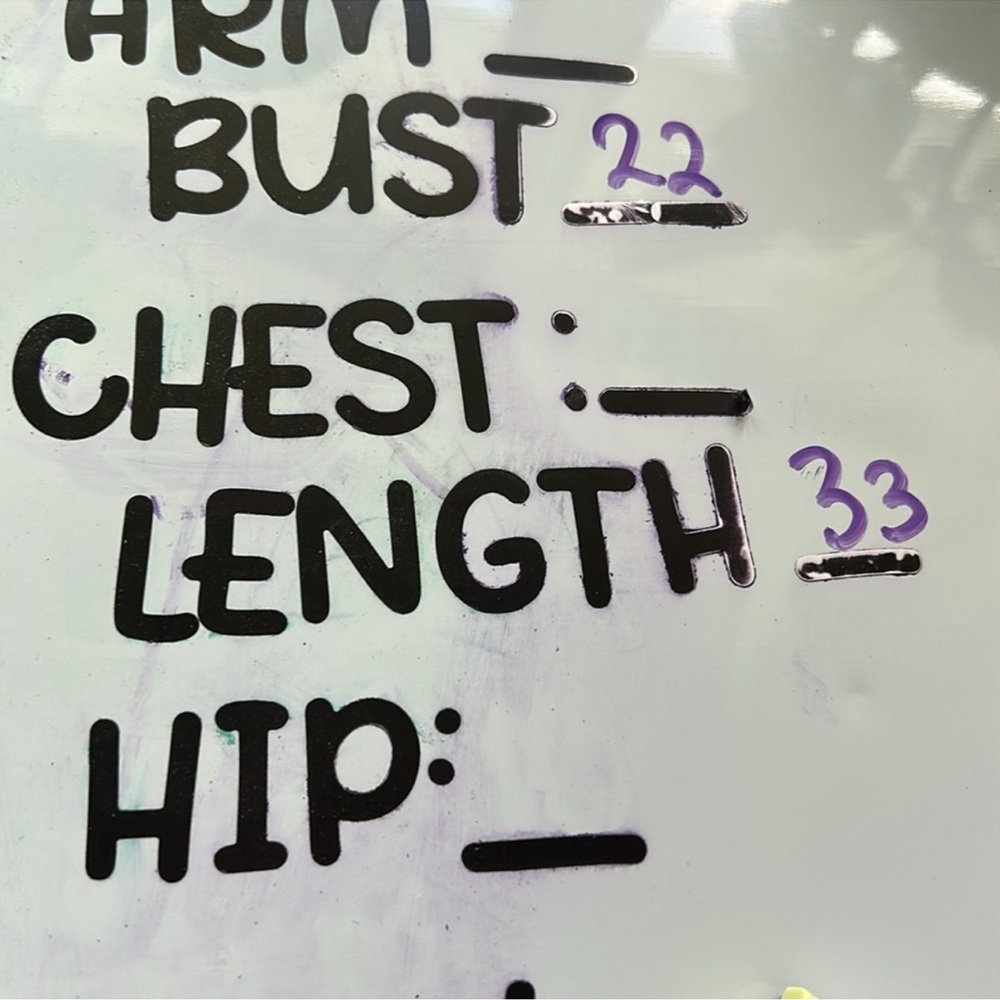 ARM __
BUST 22
CHEST:__
LENGTH 33
HIP: __